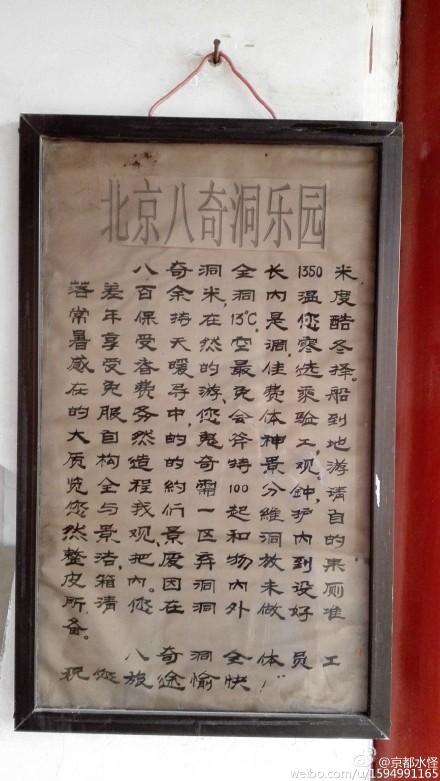 北京八奇洞乐园
八奇洞全长1350米,
落差百余米,洞内温度
常年保持在13℃,是您酷
暑享受天然空调,寒冬
感受春暖的最佳选择。
在免费导游免费乘船
的服务中,您会体验到
大自然的鬼斧神工,地
质构造的奇特景观。游
览全程约需100分钟,请
您与我们一起维护自
然景观景区和洞内的
整洁,把废弃物放到果
皮箱内。因洞内未设厕
所清您在洞外做好准
备。
八奇洞全体员工
祝您旅途愉快!
@京都水怪
weibo.com/u/1594991165